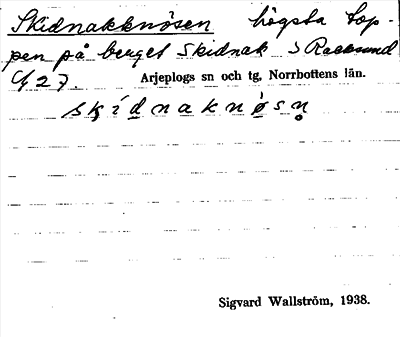 Skidnakknösen högsta top-
pen på berget Skidnak S Racksund
C/4 27.
Arjeplogs sn och tg, Norrbottens län.
skídnaknøsn̥
Sigvard Wallström, 1938.